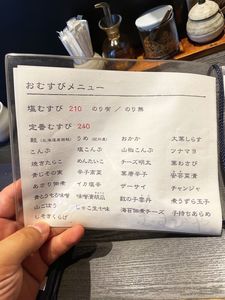 おむすびメニュー
塩むすび 210 のり有 / のり無
定番むすび 260
鮭 うめ おかか 大葉しらす
こんぶ 塩こんぶ 山椒こんぶ ツナマヨ
焼きたらこ めんたいこ チーズ明太 葉わさび
青じその実 辛子高菜 葉唐辛子
あさり佃煮 イカ塩辛 ザーサイ チャンジャ
煮うずら玉子
山ごぼう じゃこ生七味 海苔佃煮チーズ 子持ちあらめ
しそきくらげ